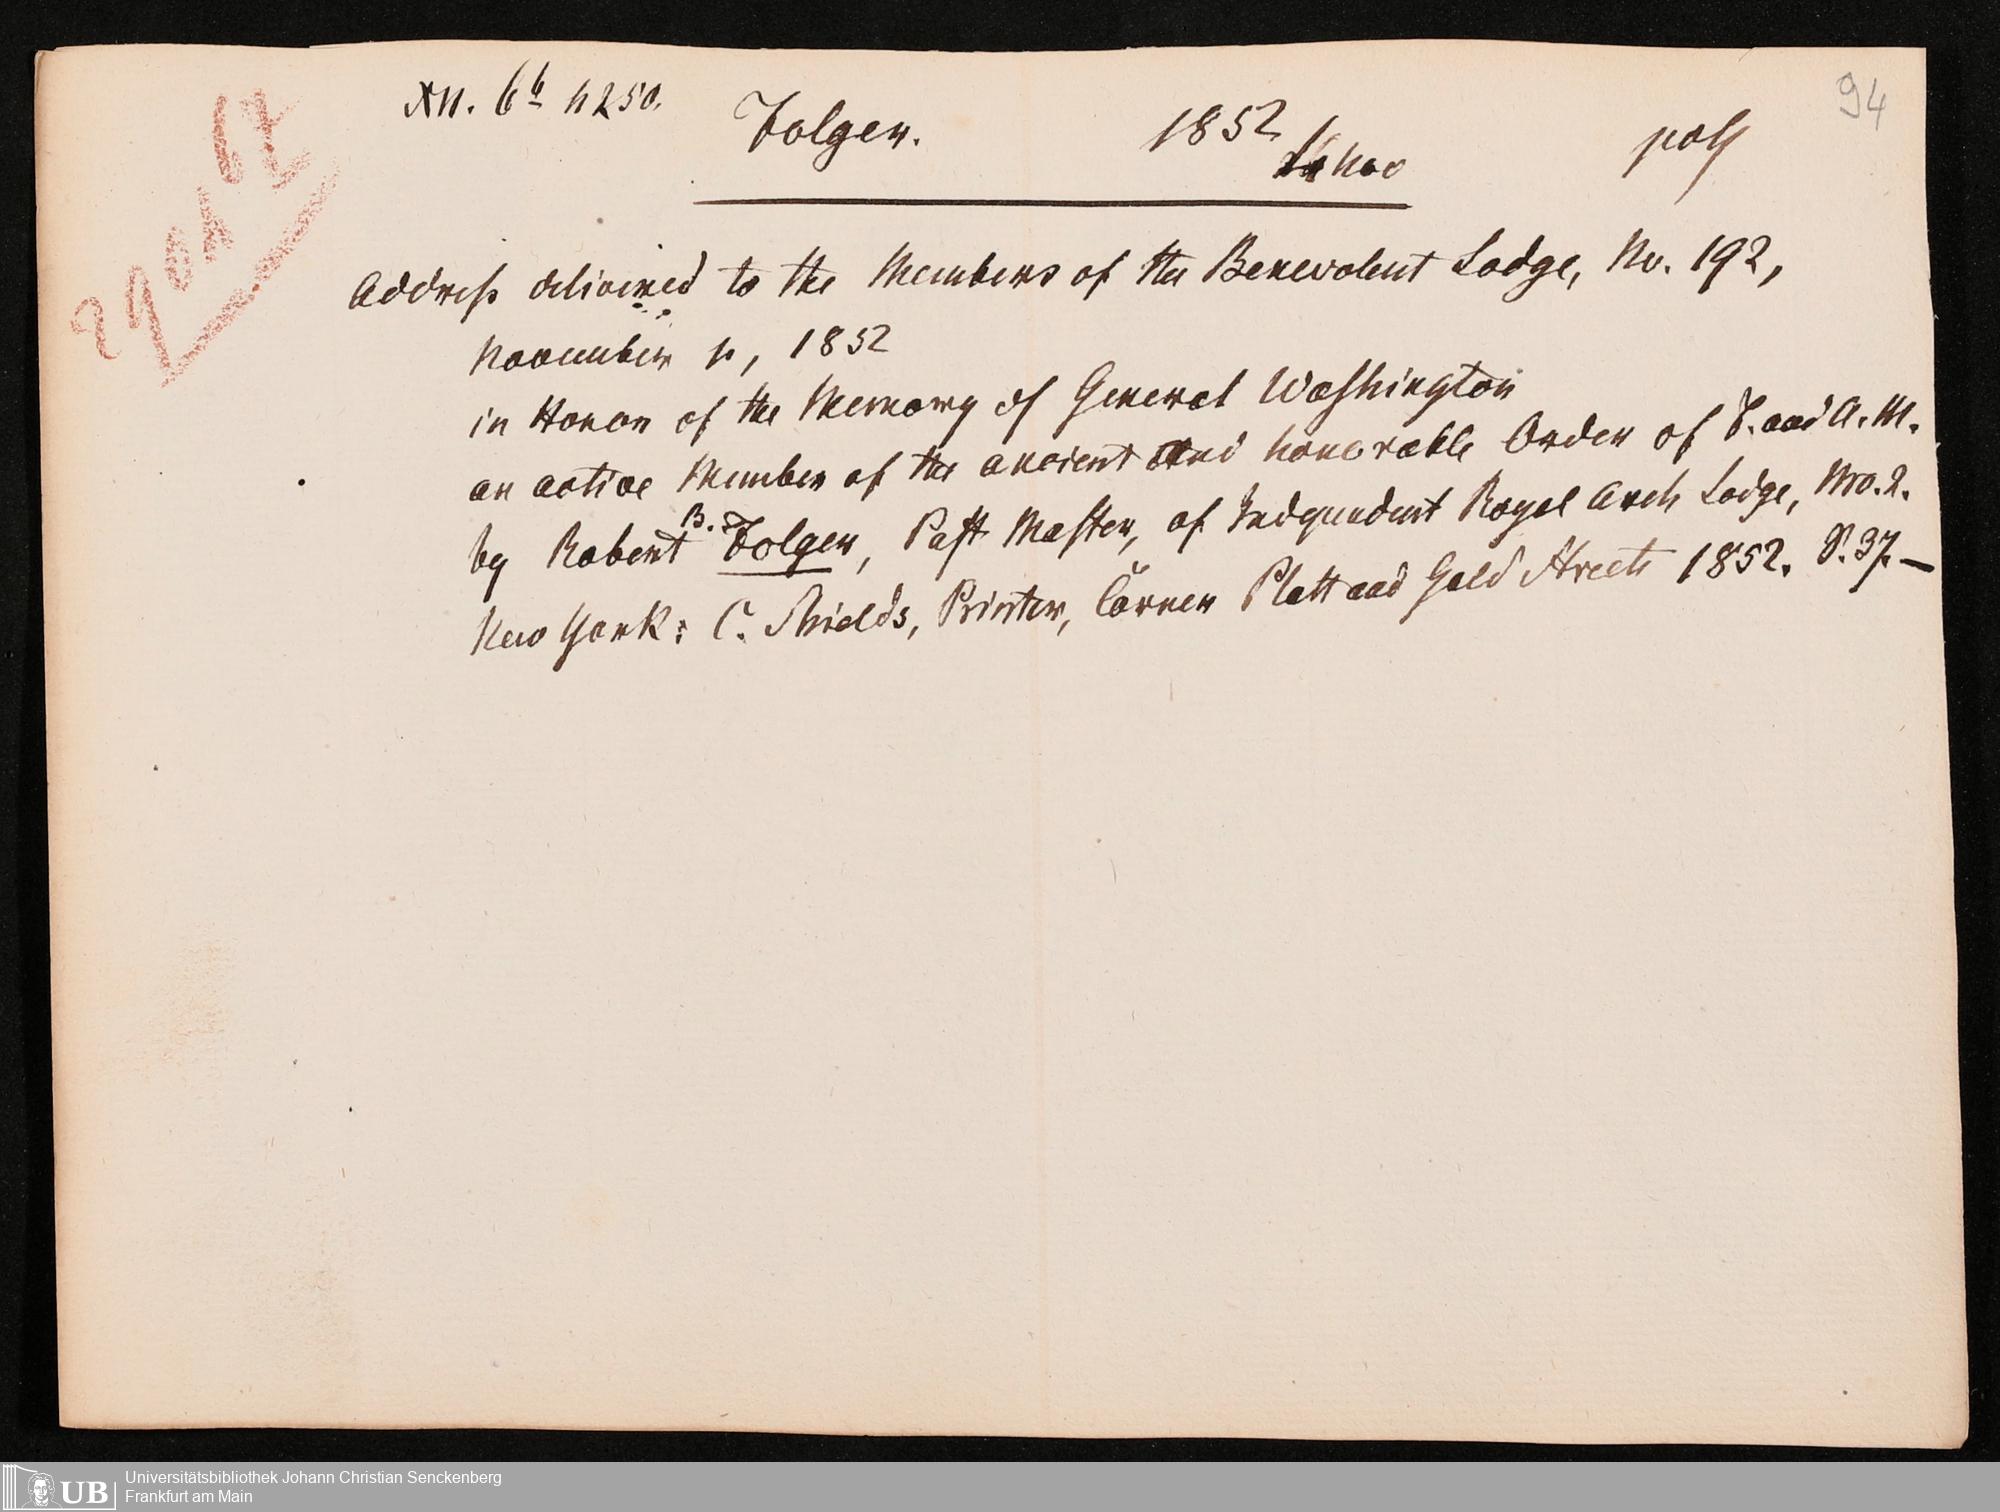 94
XII. 6b n 250.
Folger.
1852
Nov
29 Oct 67
Addreſs delivered to the Members of the Benevolent Lodge, No. 192,
November 4, 1852
in Honor of the Memory of General Waſhington
an active Member of the ancient and honorable Order of F. and A. M.
by Robert B. Folger, Paſt Maſter, of Independent Royal Arch Lodge, Nro. 2.
New York: C. Shields, Printer, Corner Platt and Gold Streets 1852. S. 37. —
UB
Universitätsbibliothek Johann Christian Senckenberg
Frankfurt am Main